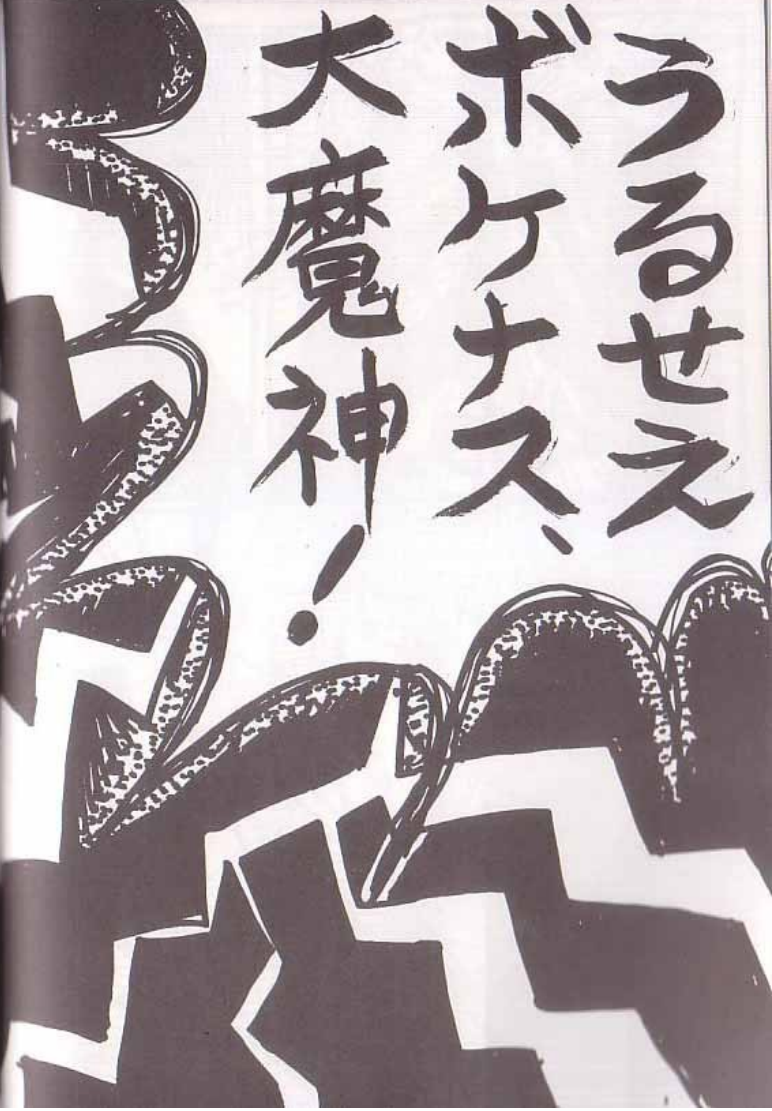 うるせえ
ボケナス、
大魔神!